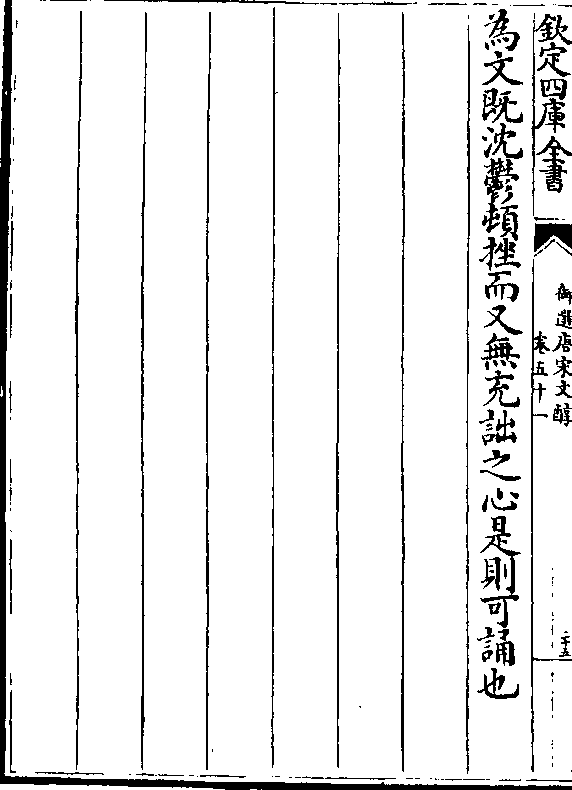 欽定四庫全書
御選唐宋文醇
卷五十一
二十五
為文既沈鬱頓挫而又無充詘之心是則可誦也